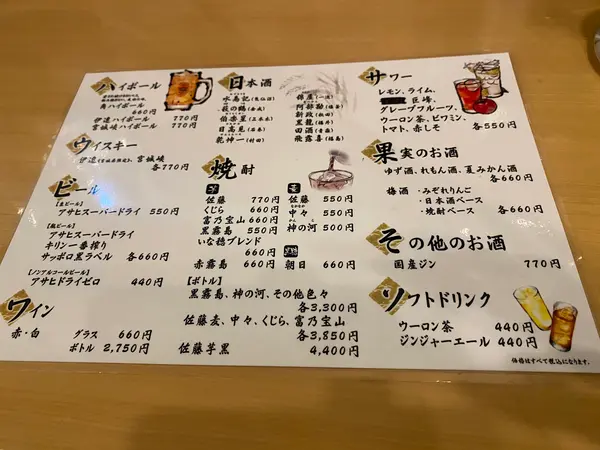 ハイボール
角ハイボール
660円
伊達ハイボール 770円
宮城峡ハイボール 770円
ウイスキー
伊達、宮城峡
各770円
ビール
【生ビール】
アサヒスーパードライ 550円
【瓶ビール】
アサヒスーパードライ
キリン一番搾り
サッポロ黒ラベル 各660円
【ノンアルコールビール】
アサヒドライゼロ 440円
ワイン
赤・白 グラス 660円
ボトル 2,750円
日本酒
水鳥記(気仙沼)
萩の鶴(金成)
伯楽星(三本木)
日高見(石巻)
乾坤一(村田)
新政(秋田)
黒龍(福井)
田酒(青森)
飛露喜(福島)
焼酎
芋
佐藤 770円
くじら 660円
富乃宝山 660円
黒霧島 550円
いな穂ブレンド
660円
赤霧島 660円
麦
佐藤 550円
中々 550円
神の河 500円
朝日 660円
【ボトル】
黒霧島、神の河、その他色々
各3,300円
佐藤麦、中々、くじら、富乃宝山
各3,850円
佐藤芋黒 4,400円
サワー
レモン、ライム、
巨峰、
グレープフルーツ、
ウーロン茶、ビワミン、
トマト、赤しそ 各550円
果実のお酒
ゆず酒、れもん酒、夏みかん酒
各660円
梅酒・みぞれりんご
・日本酒ベース
・焼酎ベース 各660円
その他のお酒
国産ジン 770円
ソフトドリンク
ウーロン茶 440円
ジンジャーエール 440円
価格はすべて税込になります。